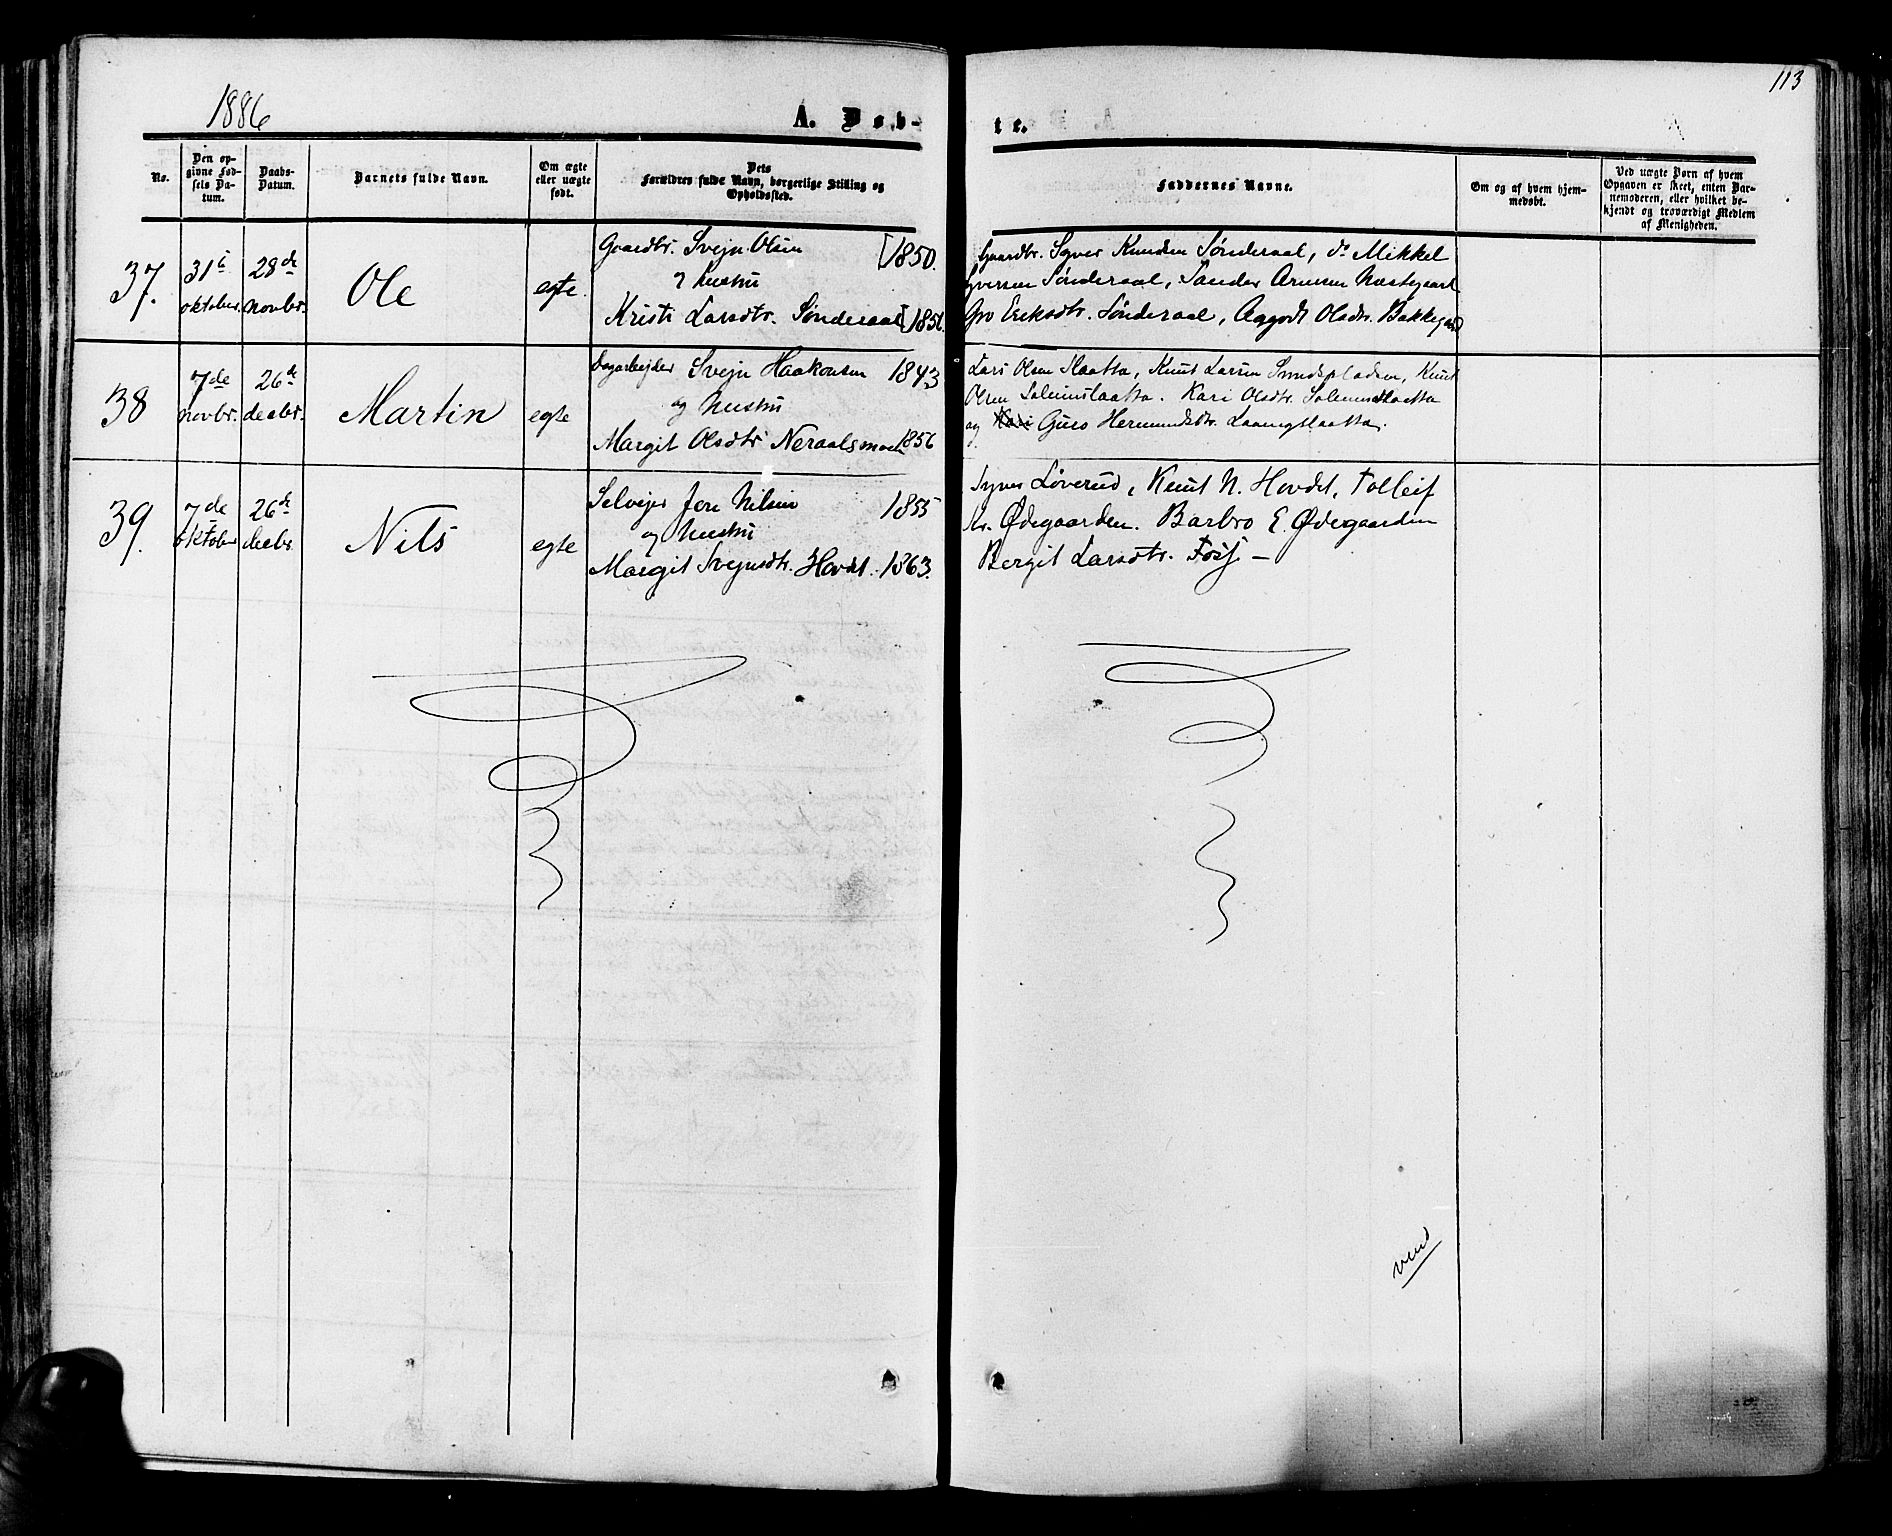 1886
113
A. Døb-
te.
No.
Den op-
givne Fød-
sels Da-
tum.
Daabs-
Datum.
Barnets fulde Navn.
Om ægte
eller uægte
født.
Dets
Forældres fulde Navn, borgerlige Stilling og
Opholdssted.
Faddernes Navne.
Om og af hvem hjem-
medøbt.
Ved uægte Børn af hvem
Opgaven er skeet, enten Bar-
nemoderen, eller hvilket be-
kjendt og troværdigt Medlem
af Menigheden.
37.
31te
oktober
28de
novbr.
Ole
egte.
Gaardbr. Svejn Olsen [1850.
Hustru
Kristi Larsdtr. Sønderaal
Gaardbr. Syver Knudsen Sønderaal, do Mikkel
Syversen Sønderaal, Sander Arnesen
Gro Eriksdtr. Sønderaal, Aagodt Olsdtr.
38
7de
novbr.
26de
decbr.
Martin
egte
Dagarbejder Svejn Haakonsen 1843
og Hustru
Margit Olsdtr Neraalsmoen 1856
Lars Olsen Slaatta, Knut Larsen Knut
Olsen Kari Olsdtr.
og Kari Guro Hermundsdtr.
39.
7de
oktober
26de
decbr.
Nils
egte
Selvejer Jon Nilsen 1855
og Hustru
Margit Svejnsdtr. Hovdt. 1863.
Syver Løverud, Knut N. Hovdt, Tolleif
Kr. Ødegaarden. Barbro E. Ødegaarden
Bergit Larsdtr. —
vend